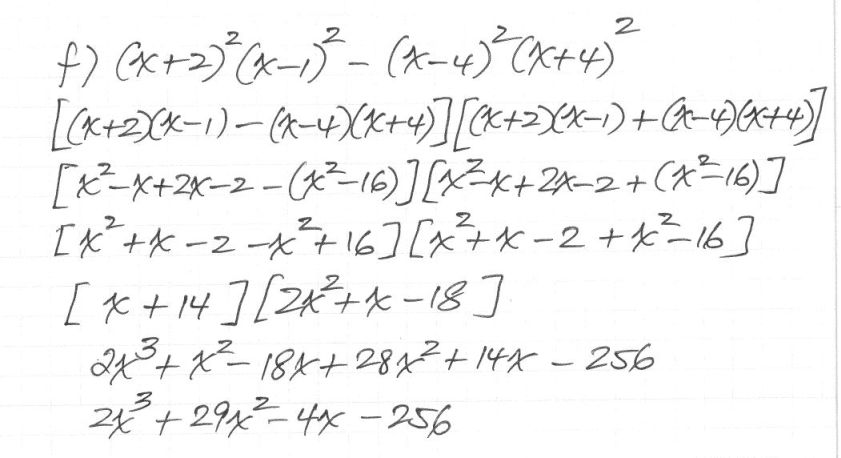 f) (x+2)²(x-1)² - (x-4)²(x+4)²
[(x+2)(x-1) - (x-4)(x+4)][(x+2)(x-1) + (x-4)(x+4)]
[x²-x+2x-2-(x²-16)][x²-x+2x-2+(x²-16)]
[x²+x-2-x²+16][x²+x-2+x²-16]
[x+14][2x²+x-18]
2x³+x²-18x+28x²+14x-256
2x³+29x²-4x-256